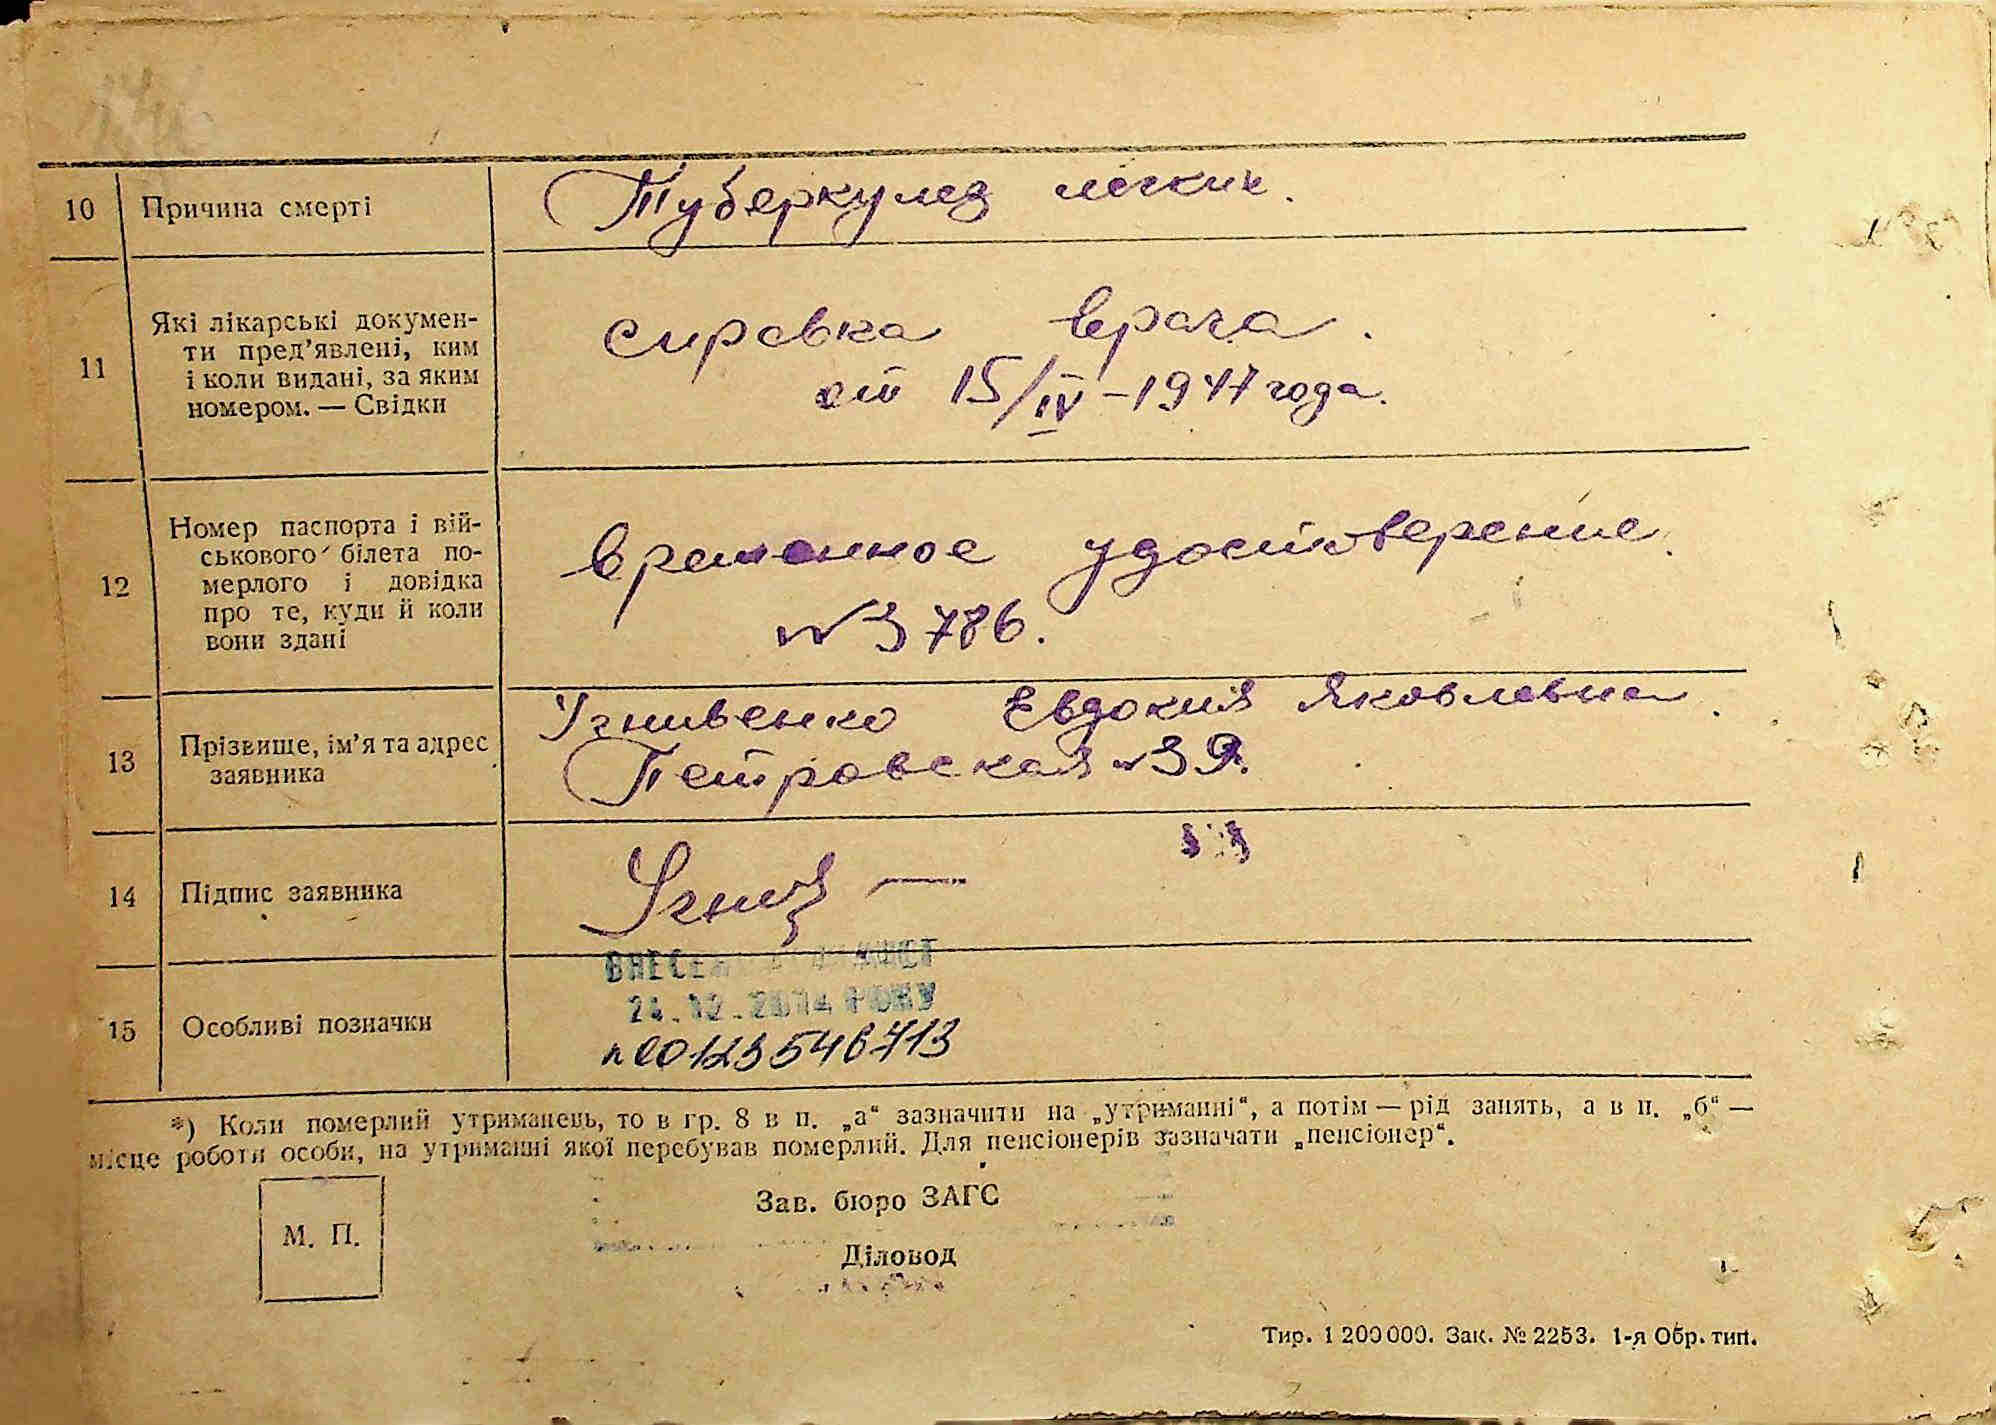 10
Причина смерті
Туберкулез легких.
11
Які лікарські докумен-
ти пред’явлені, ким
і коли видані, за яким
номером. — Свідки
справка врача.
от 15/IV – 1947 года.
12
Номер паспорта і вій-
ськового білета по-
мерлого і довідка
про те, куди й коли
вони здані
временное удостоверение.
№ 3786.
13
Прізвище, ім’я та адрес
заявника
Угнивенко Евдокия Яковлевна.
Петровская № 39.
14
Підпис заявника
15
Особливі позначки
24.12.2014 РОКУ
00123546713
*) Коли померлий утриманець, то в гр. 8 в п. „а“ зазначити на „утриманні“, а потім — рід занять, а в п. „б“ —
місце роботи особи, на утриманні якої перебував померлий. Для пенсіонерів зазначати „пенсіонер“.
М. П.
Зав. бюро ЗАГС
Діловод
Тир. 1 200 000. Зак. № 2253. 1-я Обр. тип.